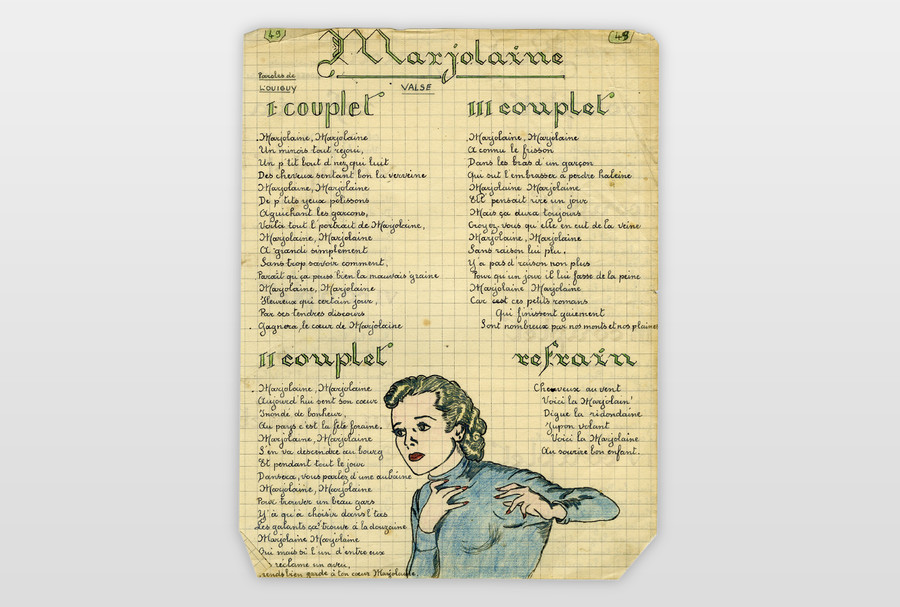 49
48
Marjolaine
Paroles de
LOUIGUY
VALSE
I couplet
Marjolaine, Marjolaine
Un minois tout rejoui,
Un p'tit bout d'nez qui luit
Des cheveux sentant bon la verveine
Marjolaine, Marjolaine
De p'tits yeux polissons
Aguichant les garçons,
Voilà tout l'portrait de Marjolaine,
Marjolaine, Marjolaine
A grandi simplement
Sans trop savoir comment,
Parait qu'ça pouss bien la mauvais graine
Marjolaine, Marjolaine
Heureux qui certain jour,
Par ses tendres discours
Gagnera, le cœur de Marjolaine
II couplet
Marjolaine, Marjolaine
Aujourd'hui sent son cœur
Inondé de bonheur,
Au pays c'est la fête foraine.
Marjolaine, Marjolaine
S'en va descendre au bourg
Et pendant tout le jour
Dansera, vous parlez d'une aubaine
Marjolaine, Marjolaine
Pour trouver un beau gars
Y'a qu'à choisir dans l'tas
Les galants ça s'trouve à la douzaine
Marjolaine Marjolaine
Oui mais si l'un d'entre eux
réclame un aveu,
rends bien garde à ton cœur Marjolaine.
III couplet
Marjolaine, Marjolaine
A connu le frisson
Dans les bras d'un garçon
Qui sut l'embrasser à perdre haleine
Marjolaine Marjolaine
Ell' pensait rire un jour
Mais ça dura toujours
Croyez-vous qu'elle en eut de la veine
Marjolaine, Marjolaine
Sans raison lui plu,
Y'a pas d'raison non plus
Pour qu'un jour il lui fasse de la peine
Marjolaine Marjolaine
Car c'est ces petits romans
Qui finissent gaiement
Sont nombreux par nos monts et nos plaines
refrain
Cheveux au vent
Voici la Marjolain'
Digue la ridondaine
Jupon volant
Voici la Marjolaine
Au sourire bon enfant.